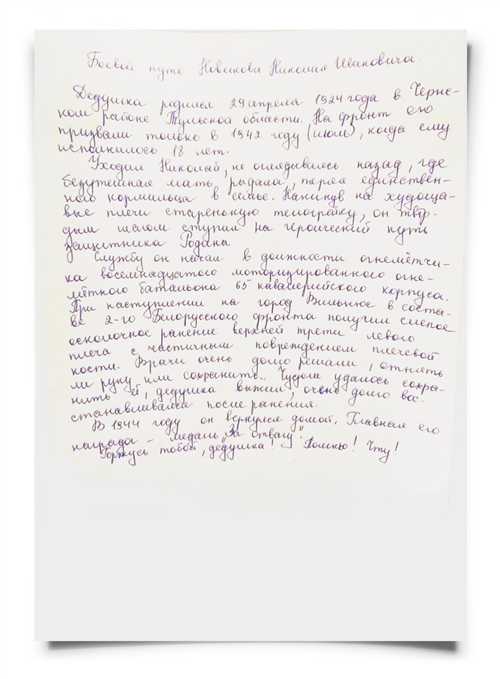 Боевой путь Новикова Николая Ивановича
Дедушка родился 29 апреля 1924 года в Черн-
ском районе Тульской области. На фронт его
призвали только в 1942 году (июль), когда ему
исполнилось 18 лет.
Уходил Николай, не оглядываясь назад, где
безутешная мать рыдала, теряя единствен-
ного кормильца в семье. Накинув на худоща-
вые плечи старенькую телогрейку, он твёр-
дым шагом ступил на героический путь
защитника Родины
Службу он начал в должности огнемётчи-
ка восемнадцатого моторизированного огне-
мётного батальона 65 кавалерийского корпуса.
При наступлении на город Вильнюс в соста-
ве 2-го Белорусского фронта получил слепое
осколочное ранение верхней трети левого
плеча с частичным повреждением плечевой
кости. Врачи очень долго решали, отнять
ли руку или сохранить. Чудом удалось сохра-
нить её, дедушка выжил, очень долго вос-
станавливался после ранения.
В 1944 году он вернулся домой. Главная его
награда - медаль "За отвагу".
Горжусь тобой, дедушка! Помню! Чту!